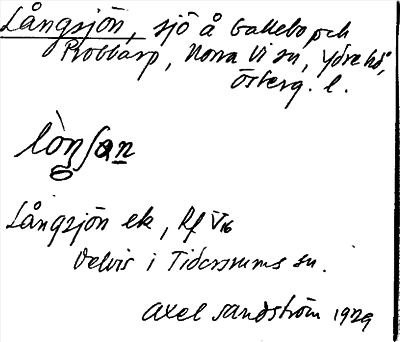 Långsjön, sjö å Gallebo och
Robbarp, Norra Vi sn, Ydre hd,
Österg. l.
lòŋʃɑn
Långsjön ek, Rf V16
delvis i Tidersrums sn.
Axel Sandström 1929